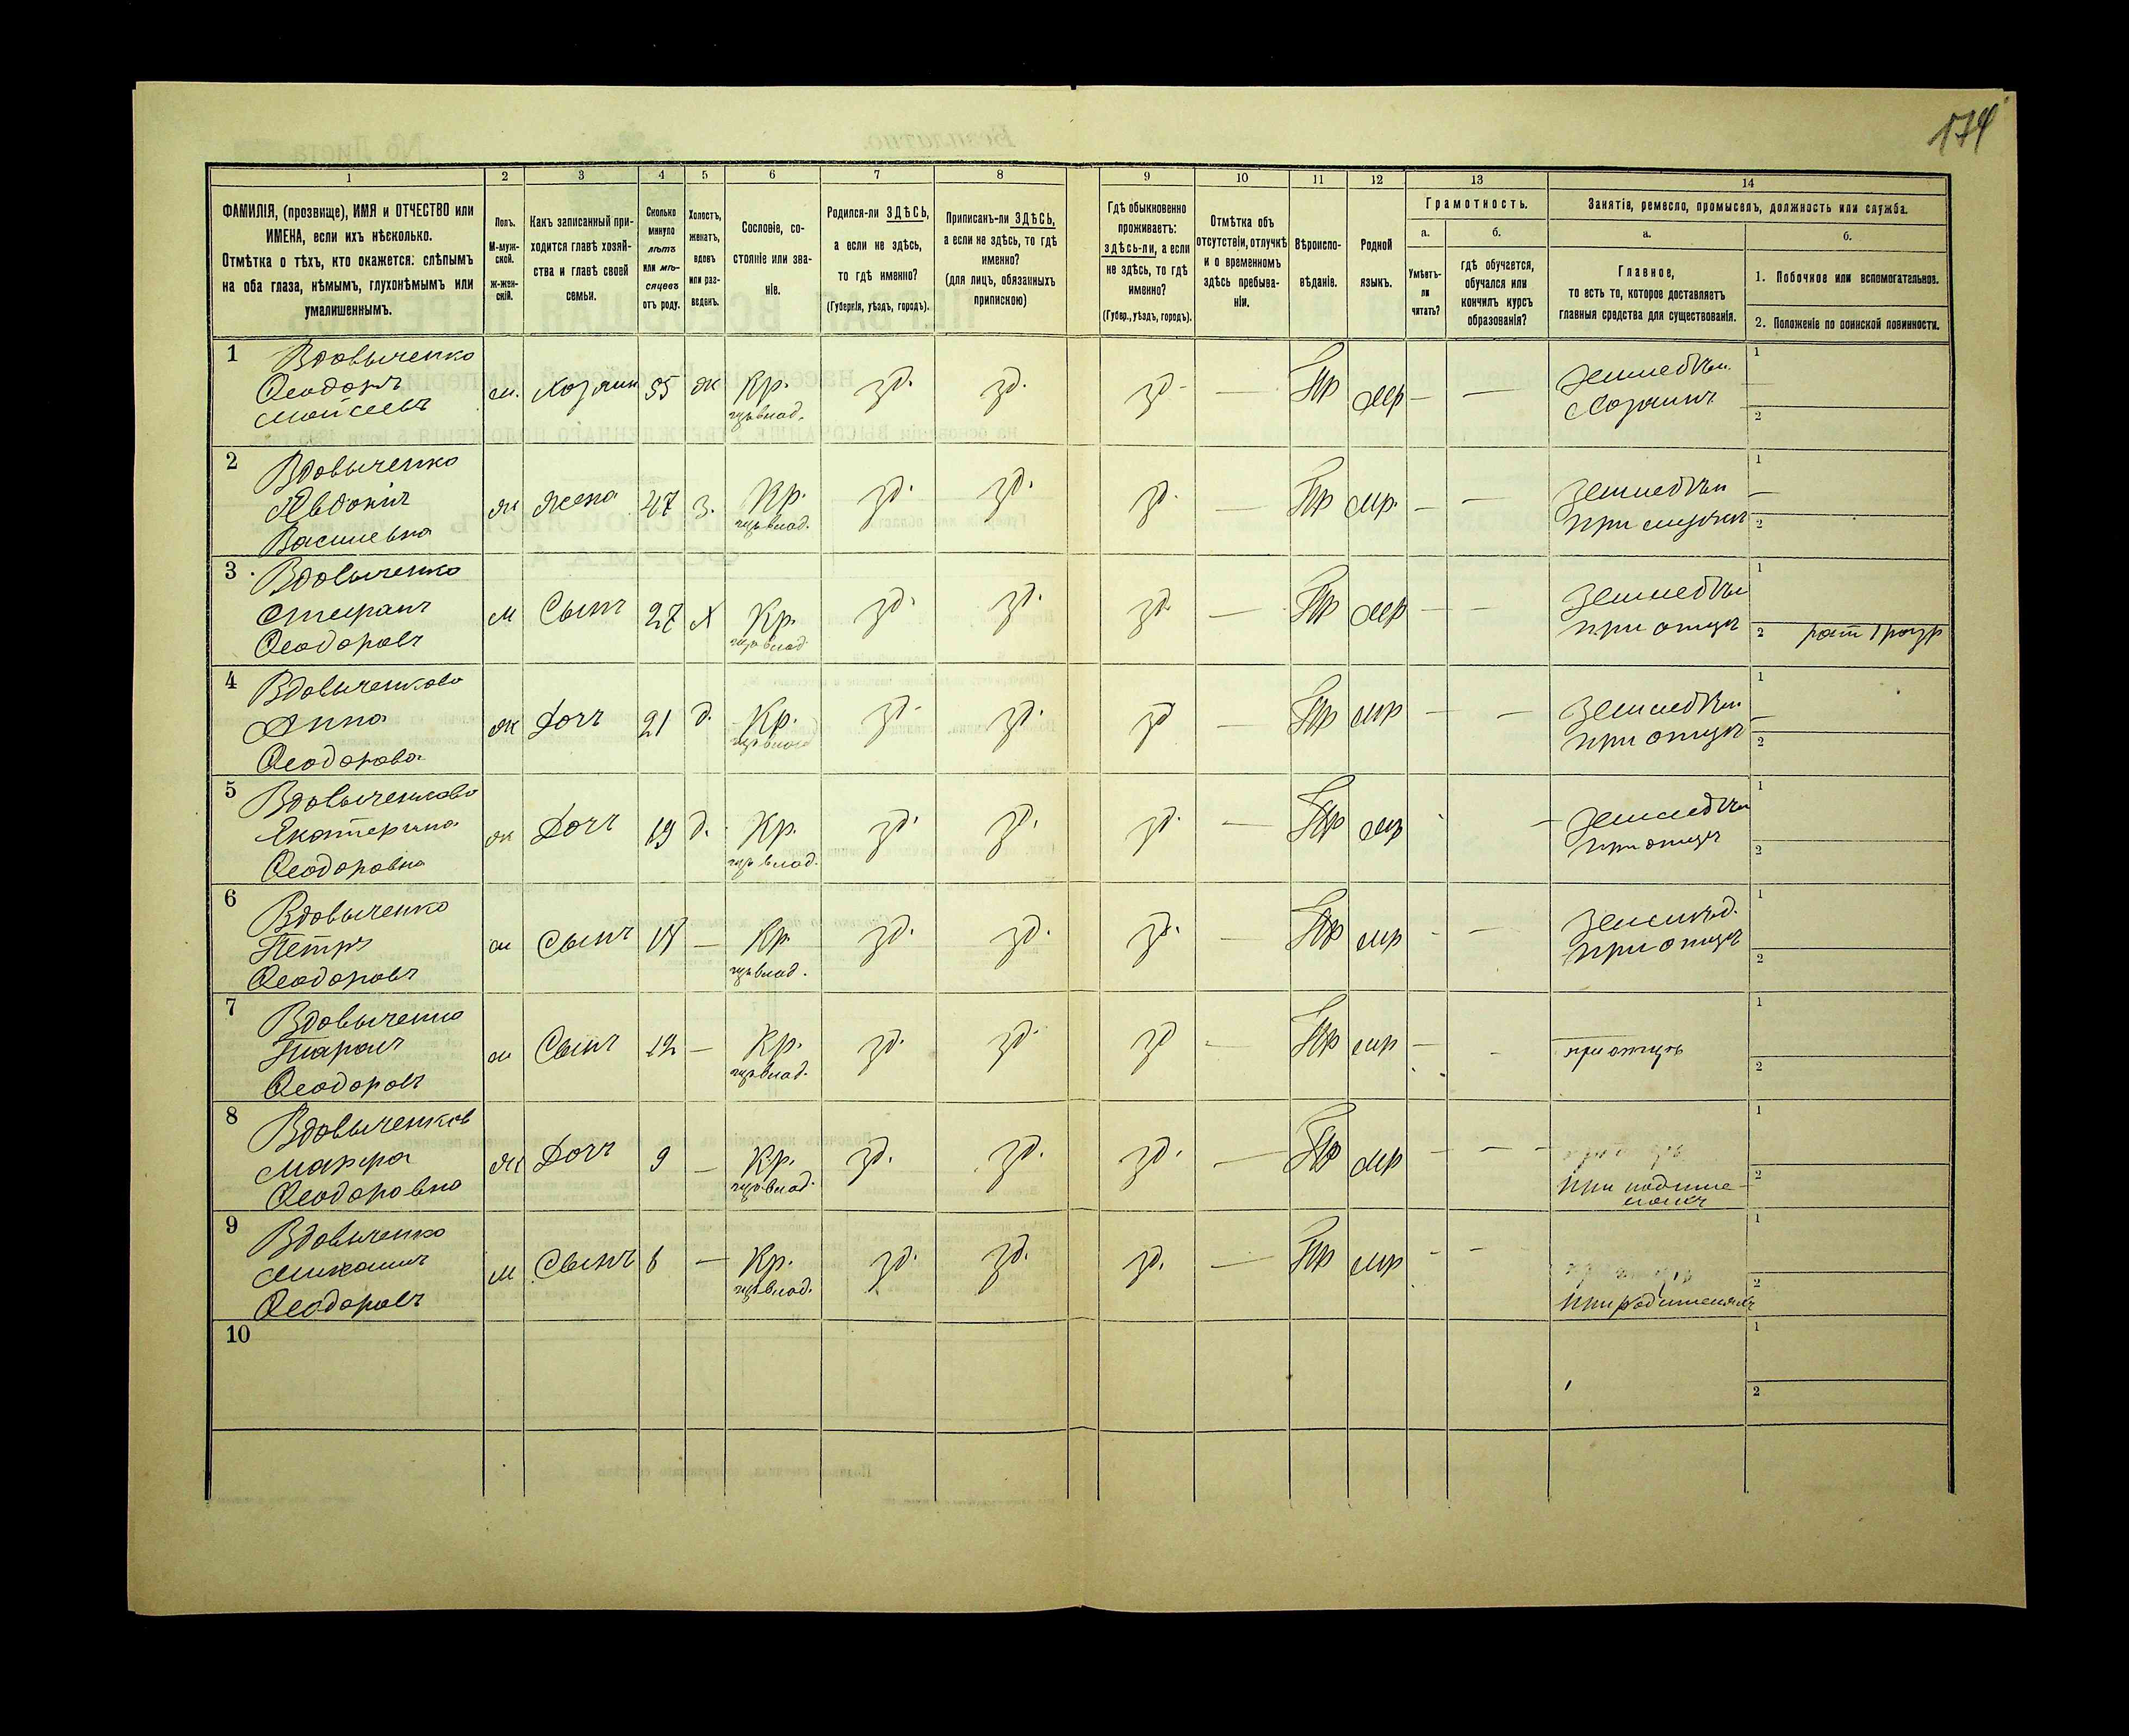 174
1
2
3
4
5
6
7
8
9
10
11
12
13
14
ФАМИЛІЯ, (прозвище), ИМЯ и ОТЧЕСТВО или
ИМЕНА, если ихъ нѣсколько.
Отмѣтка о тѣхъ, кто окажется: слѣпымъ
на оба глаза, нѣмымъ, глухонѣмымъ или
умалишеннымъ.
Полъ.
М-муж-
ской.
Ж-жен-
скій.
Какъ записанный при-
ходится главѣ хозяй-
ства и главѣ своей
семьи.
Сколько
минуло
лѣтъ
или мѣ-
сяцевъ
отъ роду.
Холостъ,
женатъ,
вдовъ
или раз-
веденъ.
Сословіе, со-
стояніе или зва-
ніе.
Родился-ли ЗДѢСЬ,
а если не здѣсь,
то гдѣ именно?
(Губернія, уѣздъ, городъ).
Приписанъ-ли ЗДѢСЬ,
а если не здѣсь, то гдѣ
именно?
(для лицъ, обязанныхъ
припискою)
Гдѣ обыкновенно
проживаетъ:
здѣсь-ли, а если
не здѣсь, то гдѣ
именно?
(Губер., уѣздъ, городъ).
Отмѣтка объ
отсутствіи, отлучкѣ
и о временномъ
здѣсь пребыва-
ніи.
Вѣроиспо-
вѣданіе.
Родной
языкъ.
Грамотность.
а.
Умѣетъ-
ли
читать?
б.
гдѣ обучается,
обучался или
кончилъ курсъ
образованія?
Занятіе, ремесло, промыселъ, должность или служба.
а.
Главное,
то есть то, которое доставляетъ
главныя средства для существованія.
б.
1. Побочное или вспомогательное.
2. Положеніе по воинской повинности.
1 Вдовыченко
Ѳеодоръ
Моисеевъ
м. Хозяин 55 ж Кр. зд. зд. зд. — Пр мр — —
Хозяинъ
1
2
2 Вдовыченко
Евдокія
Василевна
ж жена 47 з. Кр. зд. зд. зд. — Пр мр. — —
при мужи
1
2
3 Вдовыченко
Стефанъ
Ѳеодоровъ
м Сынъ 27 х Кр. зд. зд. зд. — Пр мр — —
при отцѣ
1
2 рат 1 разр
4 Вдовыченкова
Анна
Ѳеодорова
ж Дочь 21 д. Кр. зд. зд. зд — Пр мр — —
при отцѣ
1
2
5 Вдовыченкова
Екатерина
Ѳеодоровна
ж Дочь 19 д. Кр. зд. зд. зд. — Пр мр —
при отцѣ
1
2
6 Вдовыченко
Петръ
Ѳеодоровъ
м Сынъ — Кр. зд. зд. зд. — Пр мр — —
землед.
при отцѣ
1
2
7 Вдовыченко
Тарасъ
Ѳеодоровъ
м Сынъ 12 — Кр. зд. зд зд — Пр мр — -
при отцѣ
1
2
8 Вдовыченков
Марфа
Ѳеодоровна
ж Дочь 9 — Кр. зд. зд. зд. — Пр мр — — —
при родите-
ляхъ
1
2
9 Вдовыченко
Михаилъ
Ѳеодоровъ
м Сынъ 6 — Кр. зд. зд. зд. — Пр мр — —
при родителяхъ
1
2
10
1
2